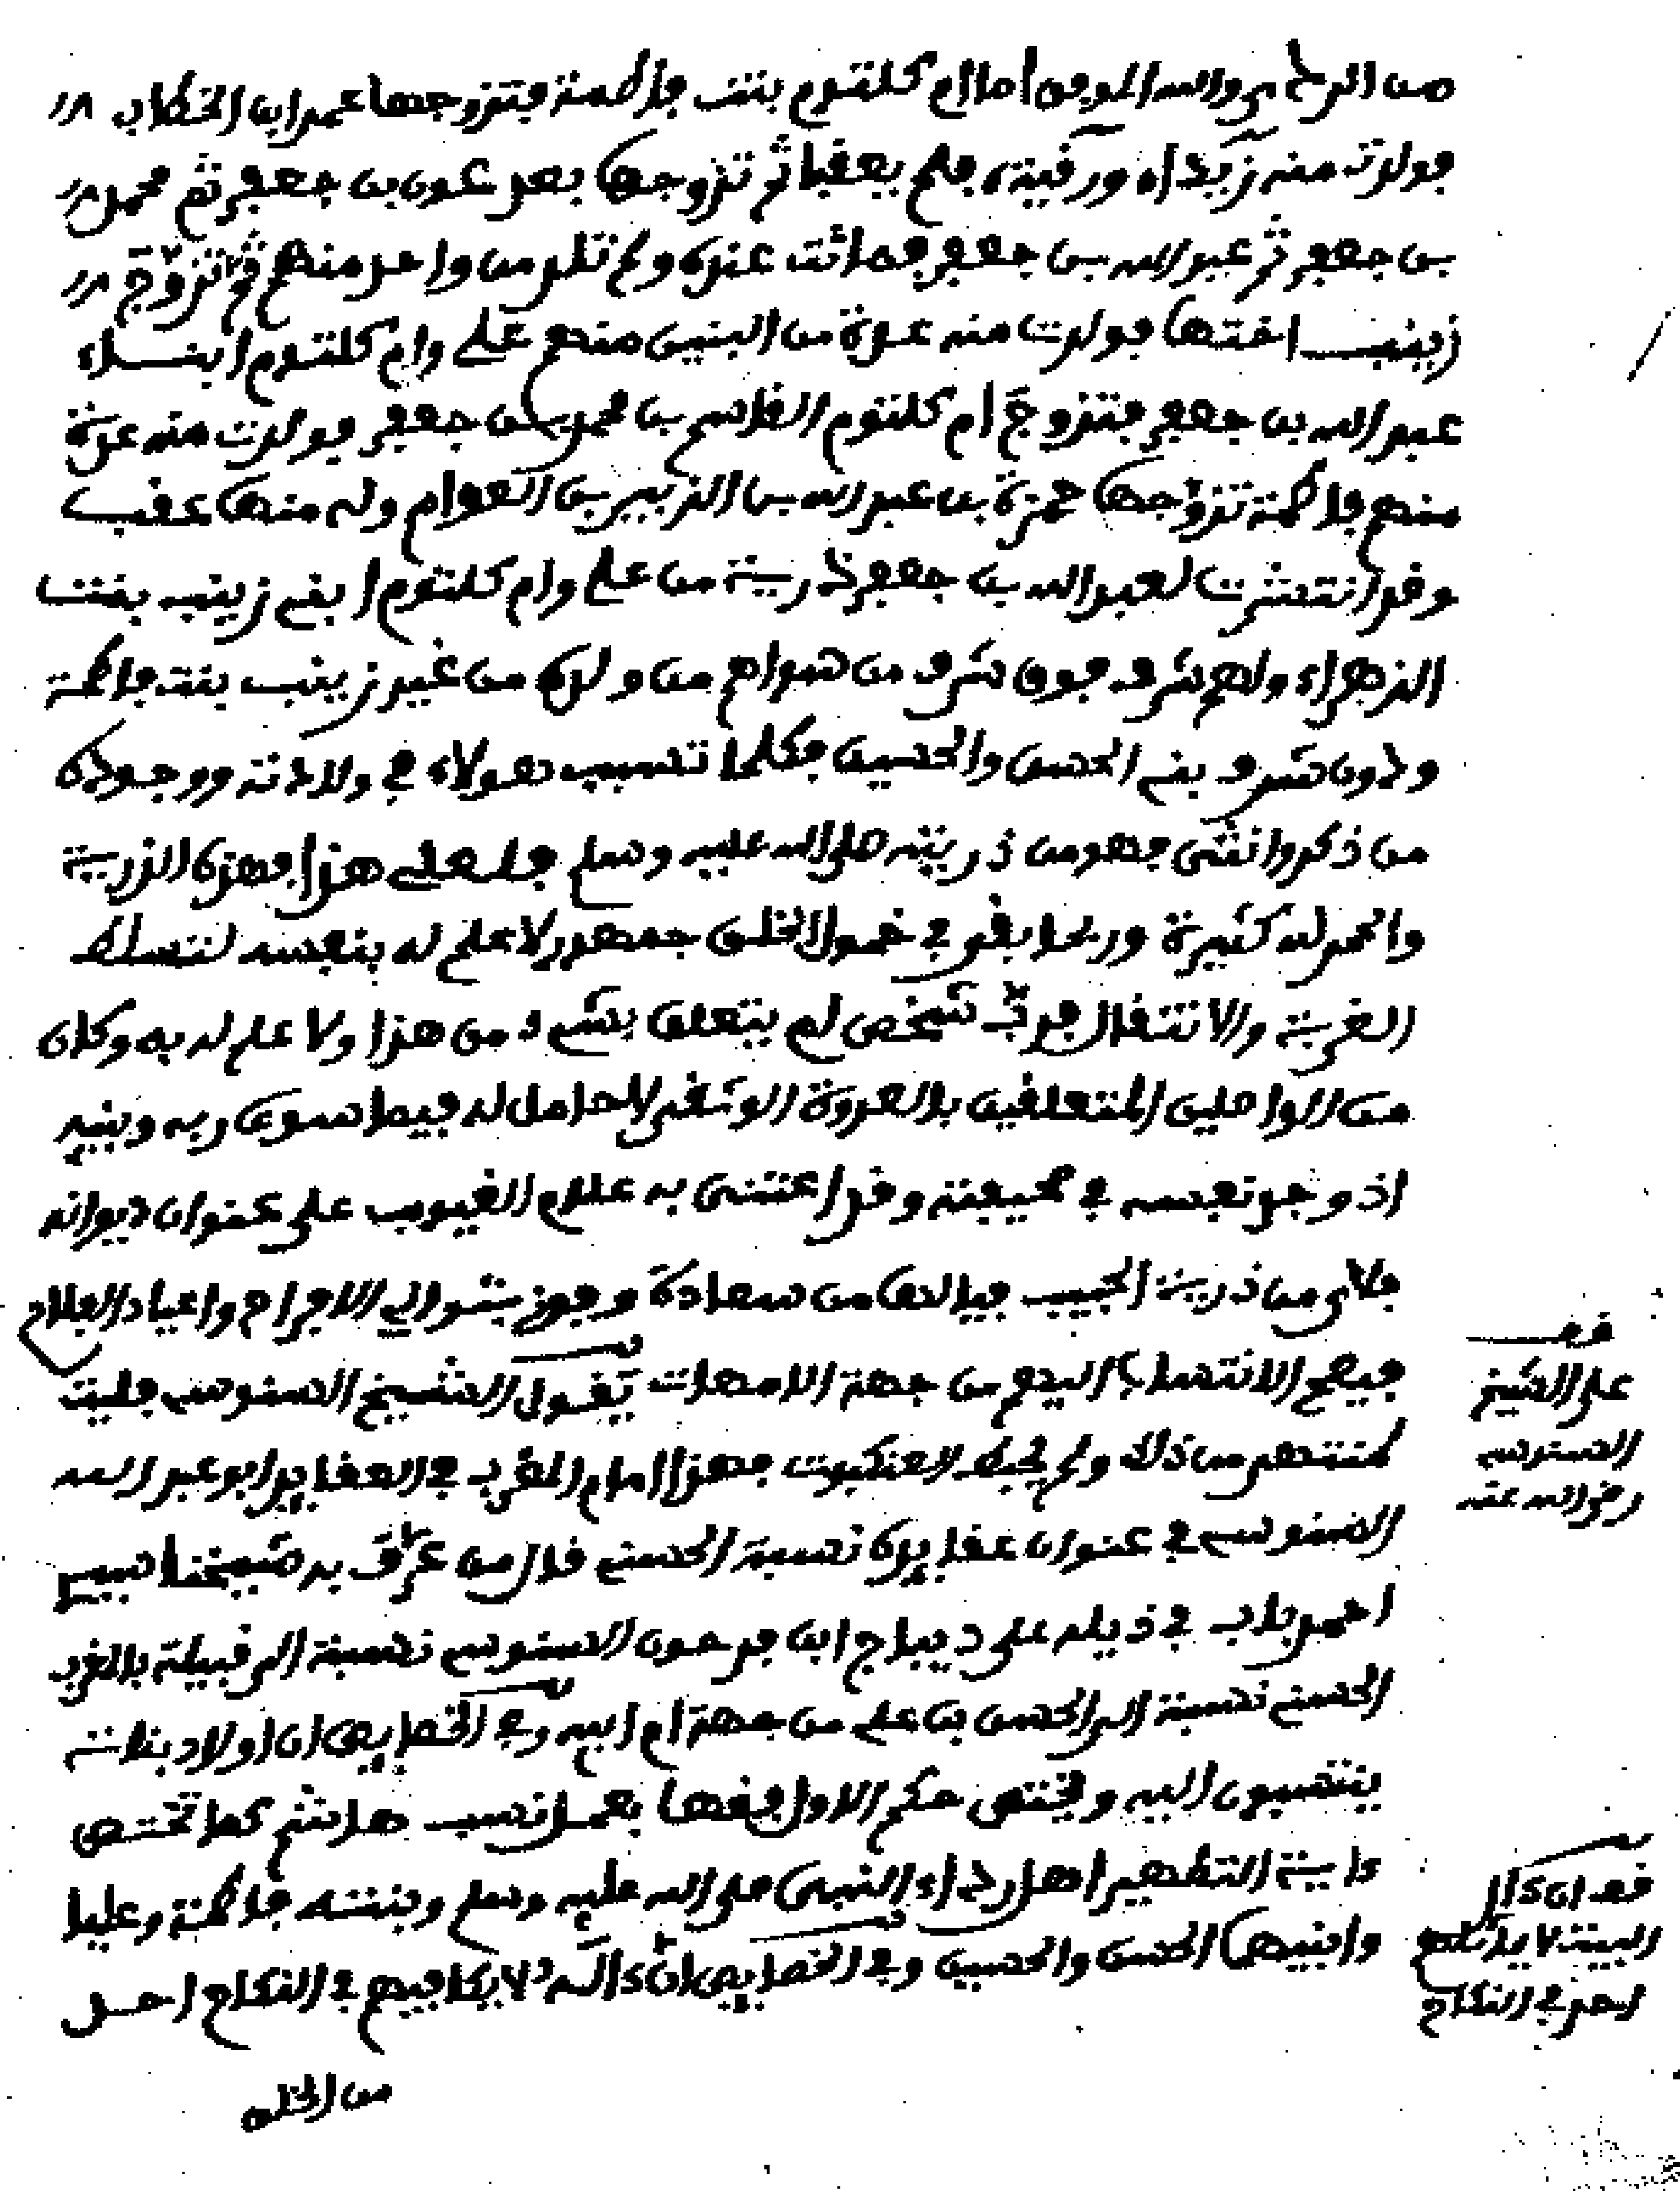 من الرجا والله الموفق اما ام كلثوم بنت فاطمة فتزوجها عمر ابن الخطاب
فولدت منه زيدا ورقية فلم يعقبا ثم تزوجها بعد عون بن جعفر ثم محمد
بن جعفر ثم عبد الله بن جعفر فماتت عنده ولم تلد من واحد منهم ثم تزوج
زينب اختها فولدت منه عدة من البنين منهم علي وام كلثوم ابناء
عبد الله بن جعفر فتزوج ام كلثوم القاسم بن محمد بن جعفر فولدت منه عدة
منهم فاطمة تزوجها حمزة بن عبد الله بن الزبير بن العوام وله منها عقب
وقد انتشرت لعبد الله بن جعفر ذرية من علي وام كلثوم ابني زينب بنت
الزهراء ولهم شرف فوق شرف من سواهم من ولده من غير زينب بنت فاطمة
ودون شرف بني الحسن والحسين فكلما تسبب هولاء في ولادته ووجوده
من ذكر وانثى فهو من ذريته صلى الله عليه وسلم فلعلى هذا فهذه الذرية
والحمد لله كثيرة وربما بقوا في خمول الخلق جمهور لا علم له بنفسه لتسلط
الغربة والانتقال فرب شخص لم يتعلق بشيء من هذا ولا علم له به وكان
من الواصلين المتعلقين بالعروة الوثقى لا حامل له فيما سوى ربه وبنيه
اذ وجد نفسه في صحيفته وقد اعتنى به علام الغيوب على عنوان ديوانه
فلان من ذرية الحبيب فيا لها من سعادة وفوز بتوالي الافراح واعياد الفلاح
فيصح الانتساب اليهم من جهة الامهات يقول الشيخ السنوسي فليت
كنتهم من ذلك ولم خيط العنكبوت فهذا امام المغرب في العقايد ابو عبد الله
السنوسي في عنوان عقايده نسبة الحسني قال من عرف به شيخنا سيد
احمد باب في ذيله على ديباج ابن فرحون السنوسي نسبة الى قبيلة بالمغرب
الحسني نسبة الى الحسن بن علي من جهة ام ابيه وفي الخصايص ان اولاد بناته
ينتسبون اليه وتختص حكم الاول فقها بعمل نسب هاشم كما تختص
داية التطهير اهل رداء النبي صلى الله عليه وسلم وبنته فاطمة وعليا
وابنيهما الحسن والحسين وفي الخصايص ان ءاله لا يكافيهم في النكاح احد
من الخلق
قف
على الشيخ
السنوسي
رضي الله عنه
قف ان ءال
البيت لا يكافيهم
احد في النكاح